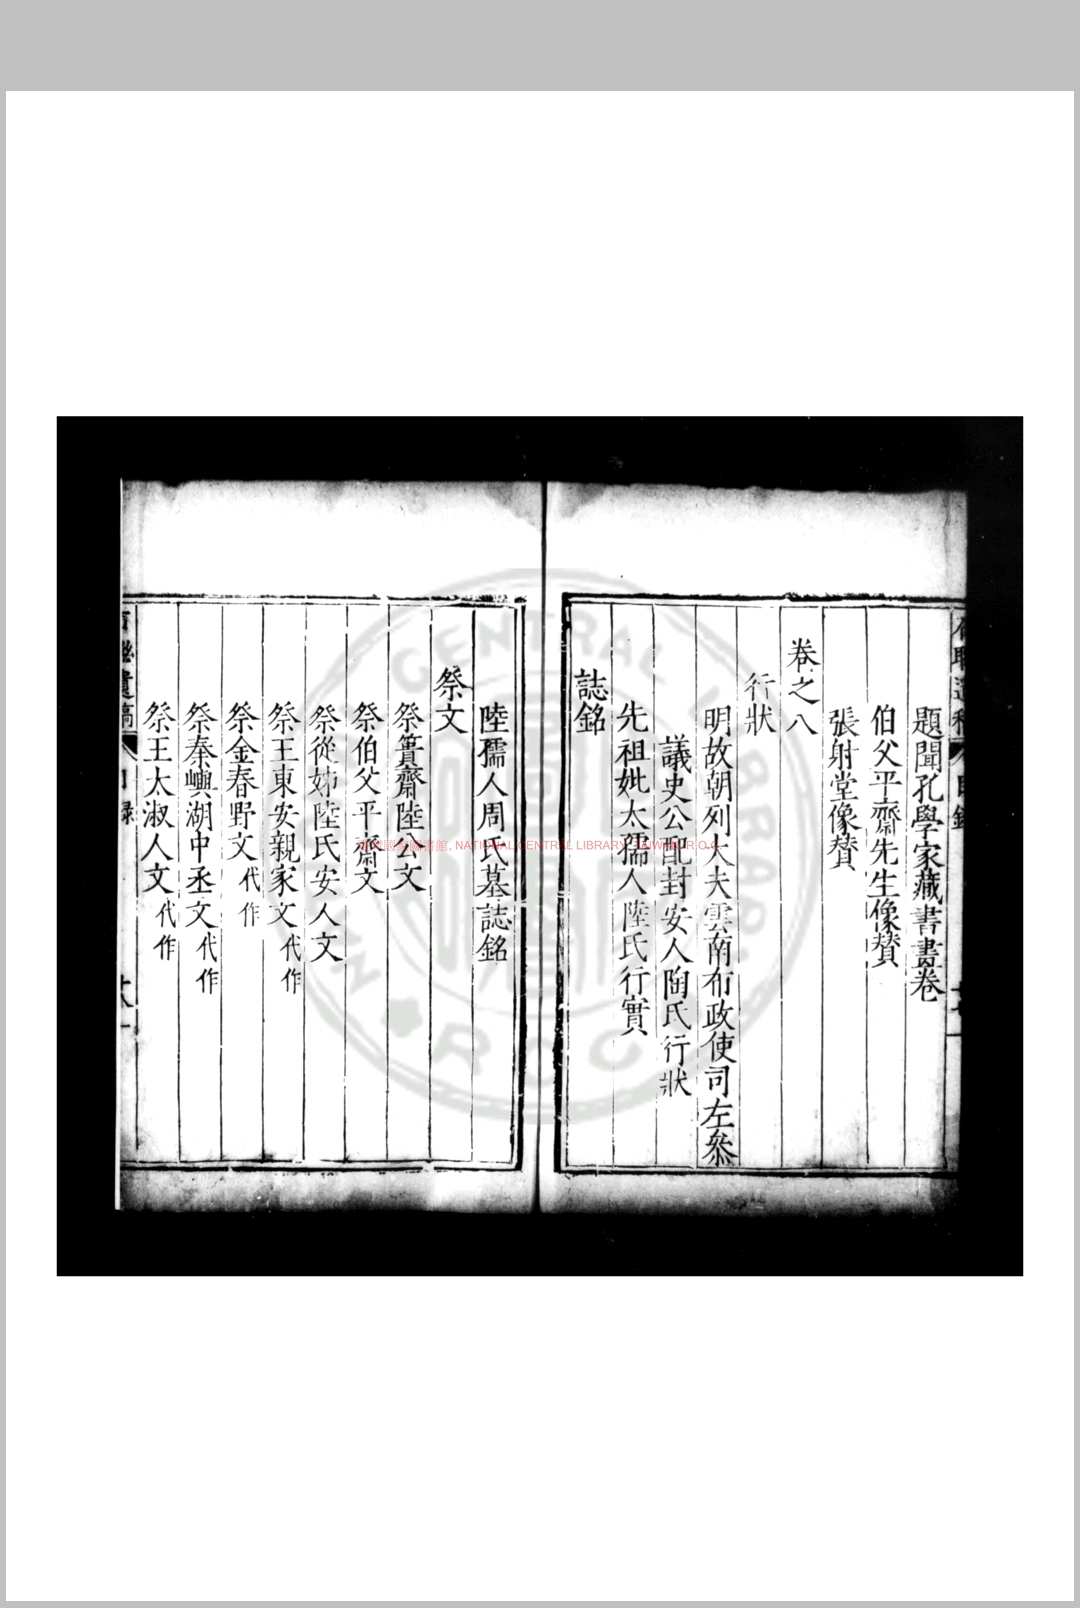 題聞孔學家藏書畫卷
伯父平齋先生像賛
張射堂像賛
卷之八
行狀
明故朝列大夫雲南布政使司左叅
議史公配封安人陶氏行狀
先祖妣太孺人陸氏行實
誌銘
陸孺人周氏墓誌銘
祭文
祭簣齋陸公文
祭伯父平齋文
祭從姊陸氏安人文
祭王東安親家文代作
祭金春野文代作
祭秦嶼湖中丞文代作
祭王太淑人文代作
遺稿 目録
NATIONAL CENTRAL LIBRARY, TAIWAN, R.O.C